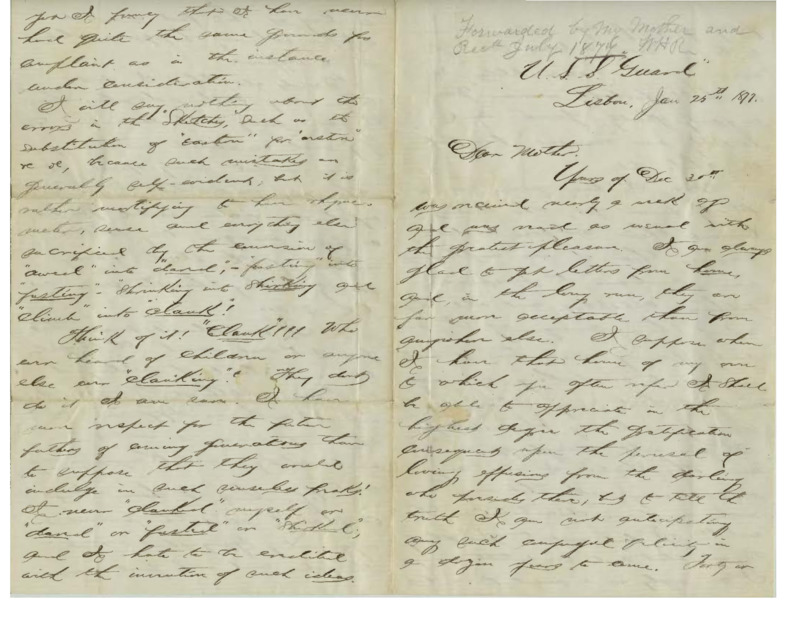 Forwarded by my Mother and
Recd July 1878. WHR
U.S.S. "Guard"
Lisbon, Jan 25th 1877.
Dear Mother.
Yours of Dec 30th
was received nearly a week ago
and was read as usual with
the greatest pleasure. I am always
glad to get letters from home,
and, in the long run, they are
far more acceptable than from
anywhere else. I suppose when
I have that home of my own
to which you often refer I shall
be able to appreciate in the
highest degree the gratification
consequent upon the perusal of
loving effusions from the darling
who presides there, but to tell the
truth I am not anticipating
any such conjugal felicity in
a dozen years to come. Forty or
you I fancy that I have never
had quite the same grounds for
complaint as in the instance
under consideration.
I will say nothing about the
errors in the "Sketches," such as the
substitution of for
because such mistakes are
generally self-evident; but it is
rather mortifying to have rhyme,
metre, sense and everything else
sacrificed by the conversion of
into "fasting" into
- "Shrinking into Shirking and
"climb" into "clank"!
Think of it! "Clank"!!! Who
ever heard of children or anyone
else ever "clanking"? They don't
do it I am sure. I have
more respect for the future
fathers of coming generations than
to suppose that they would
indulge in such senseless freaks!
I never "clanked" myself or
or or
and I hate to be credited
with the invention of such ideas.